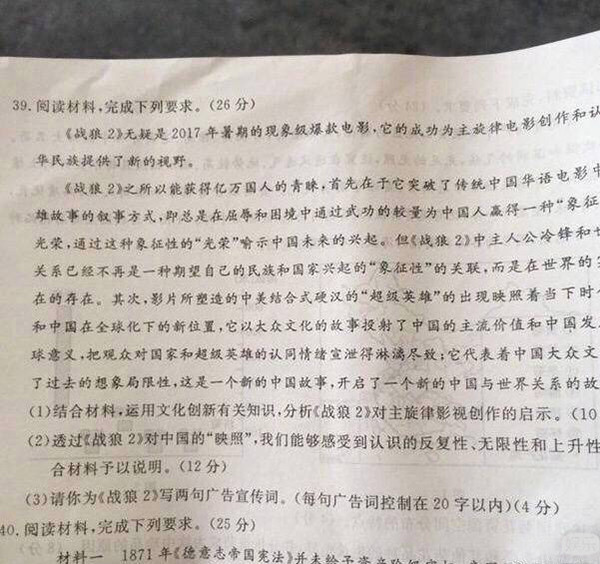 39. 阅读材料,完成下列要求。(26 分)
《战狼 2》无疑是 2017 年暑期的现象级爆款电影,它的成功为主旋律电影创作和认
华民族提供了新的视野。
《战狼 2》之所以能获得亿万国人的青睐,首先在于它突破了传统中国华语电影中
雄故事的叙事方式,即总是在屈辱和困境中通过武功的较量为中国人赢得一种“象征
光荣,通过这种象征性的“光荣”喻示中国未来的兴起。但《战狼 2》中主人公冷锋和
关系已经不再是一种期望自己的民族和国家兴起的“象征性”的关联,而是在世界的
在的存在。其次,影片所塑造的中美结合式硬汉的“超级英雄”的出现映照着当下时
和中国在全球化下的新位置,它以大众文化的故事投射了中国的主流价值和中国发
球意义,把观众对国家和超级英雄的认同情绪宣泄得淋漓尽致;它代表着中国大众文
了过去的想象局限性,这是一个新的中国故事,开启了一个新的中国与世界关系的故
(1)结合材料,运用文化创新有关知识,分析《战狼 2》对主旋律影视创作的启示。(10
(2)透过《战狼 2》对中国的“映照”,我们能够感受到认识的反复性、无限性和上升性
合材料予以说明。(12 分)
(3)请你为《战狼 2》写两句广告宣传词。(每句广告词控制在 20 字以内)(4 分)
40. 阅读材料,完成下列要求。(25 分)
材料一 1871 年《德意志帝国宪法》并未给予资产阶级